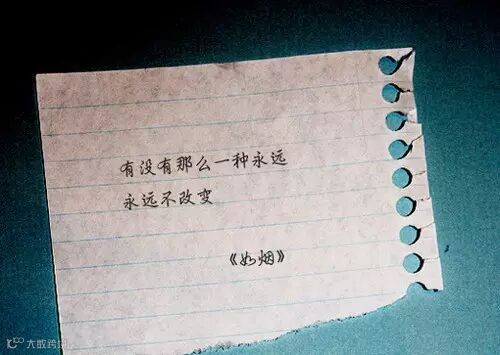 有没有那么一种永远
永远不改变
《如烟》
大数跨境